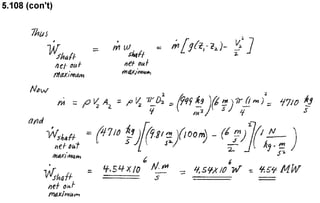 5.108 (con't)
Thus
Ẇ shaft net out maximum = ṁ w shaft net out maximum = ṁ [ g(z₁-z₂) - V₂²/2 ]
Now
ṁ = ρ V₂ A₂ = ρ V₂ π D₂²/4 = (999 kg/m³)(6 m/s) π (1 m)²/4 = 4710 kg/s
and
Ẇ shaft net out maximum = (4710 kg/s) [ (9.81 m/s²)(100 m) - (6 m/s)²/2 ] (1 N / kg·m/s²)
Ẇ shaft net out maximum = 4.54 x 10⁶ N.m/s = 4.54 x 10⁶ W = 4.54 MW